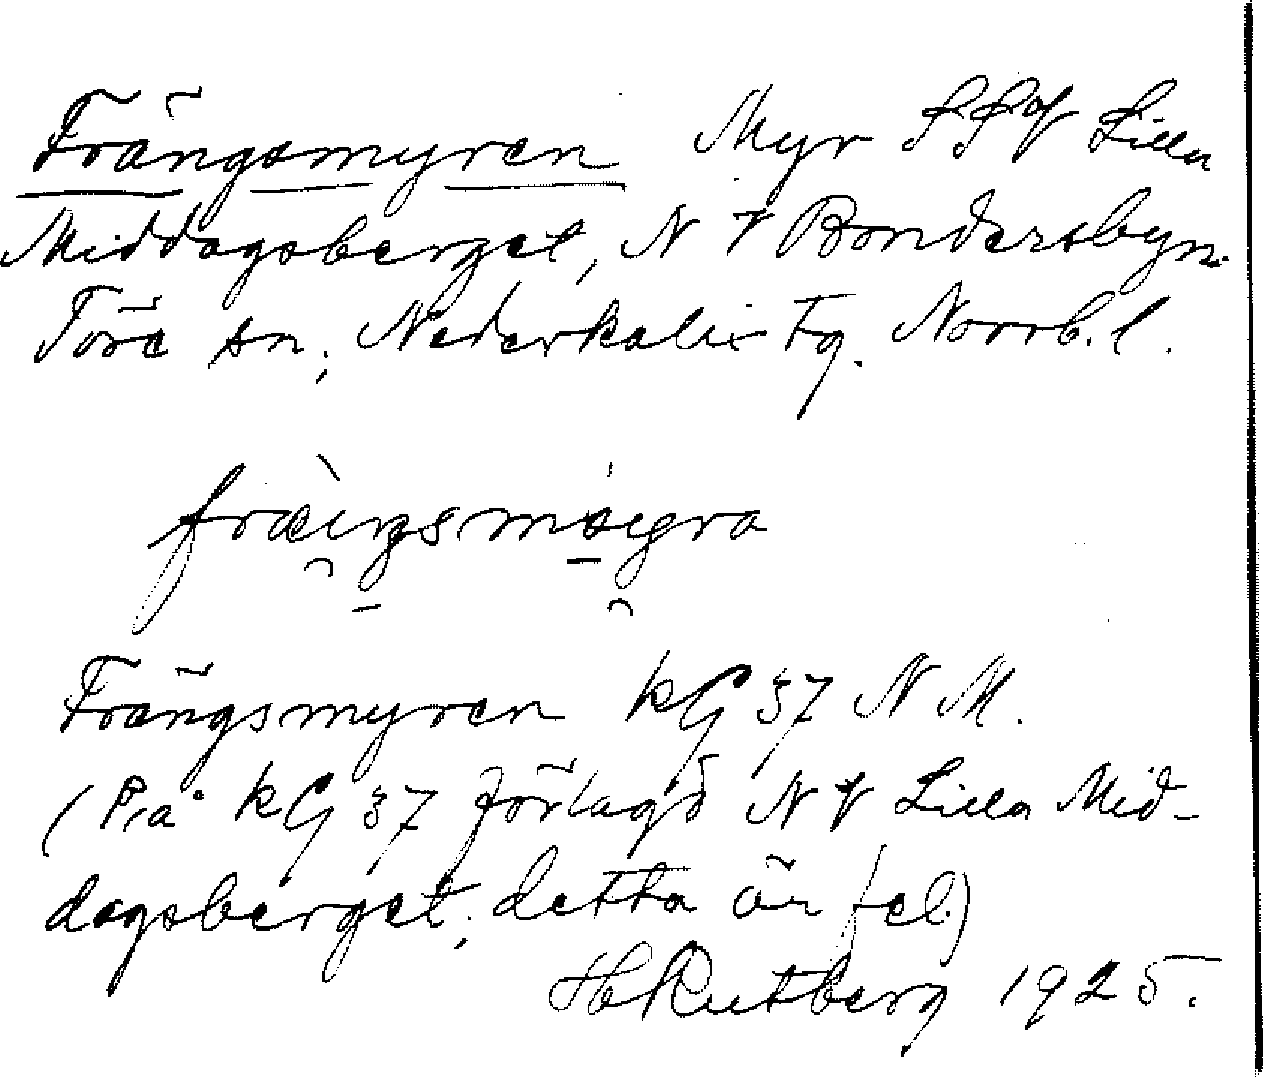 Frängsmyren Myr SSV Lilla
Middagsberget, NV Bondersbyn.
Töre sn, Nederkalix Tg. Norrb. l.
Frängsmyren kG 37 NM.
(På kG 37 förlagd NV Lilla Mid-
dagsberget, detta är fel.)
H Rutberg 1925.